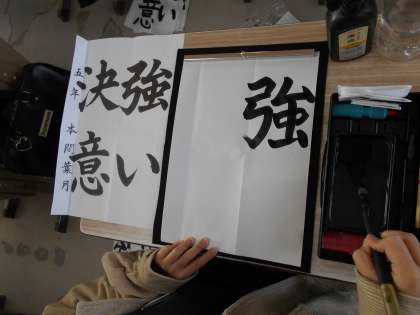 強い
決意
五年 本間葉月
強
意い